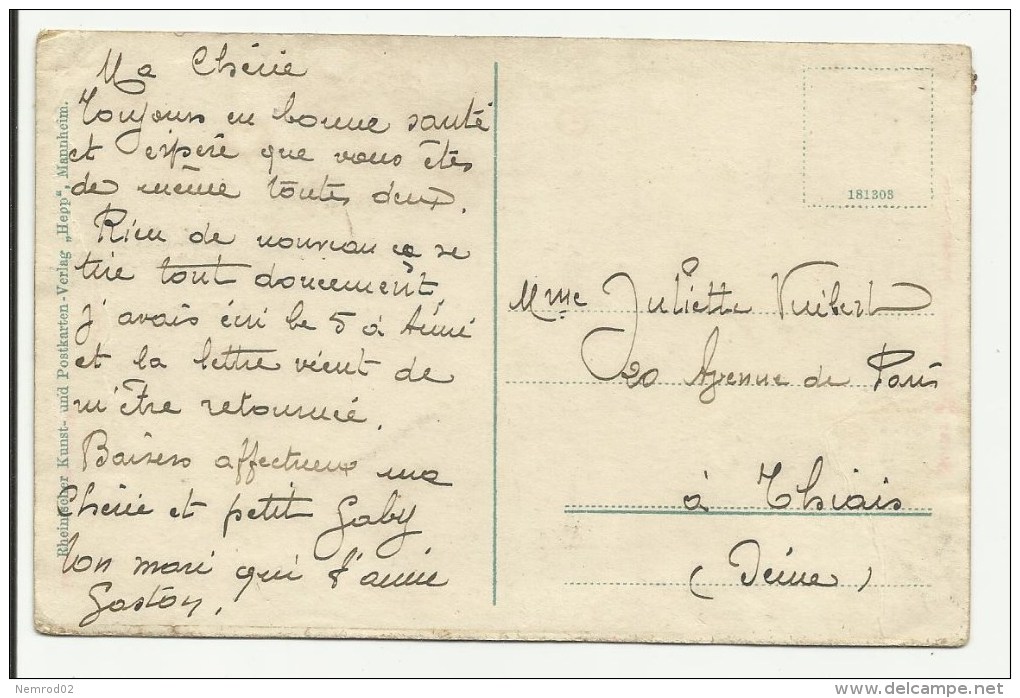 Ma Chérie
Toujours en bonne santé
et espère que vous êtes
de même toutes deux.
Rien de nouveau ça se
tire tout doucement,
J'avais écri le 5 à Aimé
et la lettre vient de
m'être retournée.
Baisers affectueux ma
Chérie et petit Gaby
Ton mari qui t'aime
Gaston.
Rheinischer Kunst- und Postkarten-Verlag „Hepp“, Mannheim.
181303
Mme Juliette Vuibert
20 Avenue de Paris
à Thiais
(Seine)
Nemrod02
http://www.delcampe.net